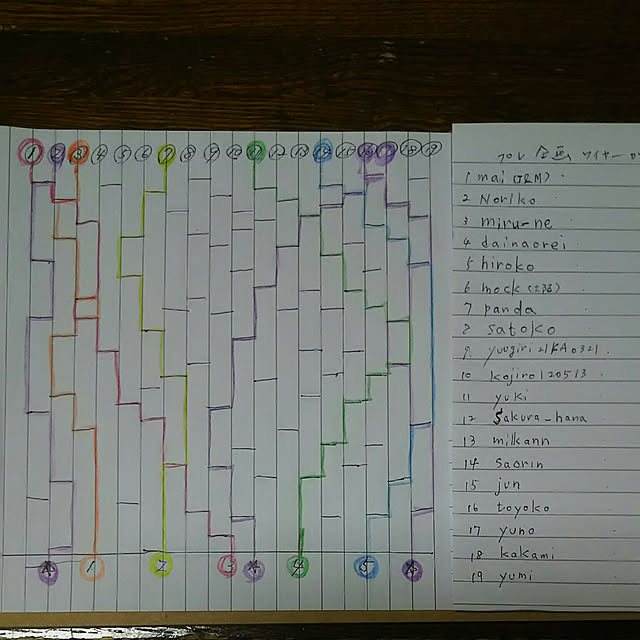 1 2 3 4 5 6 7 8 9 10 11 12 13 14 15 16 17 18 19
1 2 3 4 5
企画 ワイヤー
1 mai (JRM)
2 Noriko
3 miru-ne
4 dainaorei
5 hiroko
6 mock
7 panda
8 satoko
9
10 kojiro120513
11 yuki
12 Sakura_hana
13 milkann
14 saorin
15 jun
16 toyoko
17 yuno
18 kakami
19 yumi